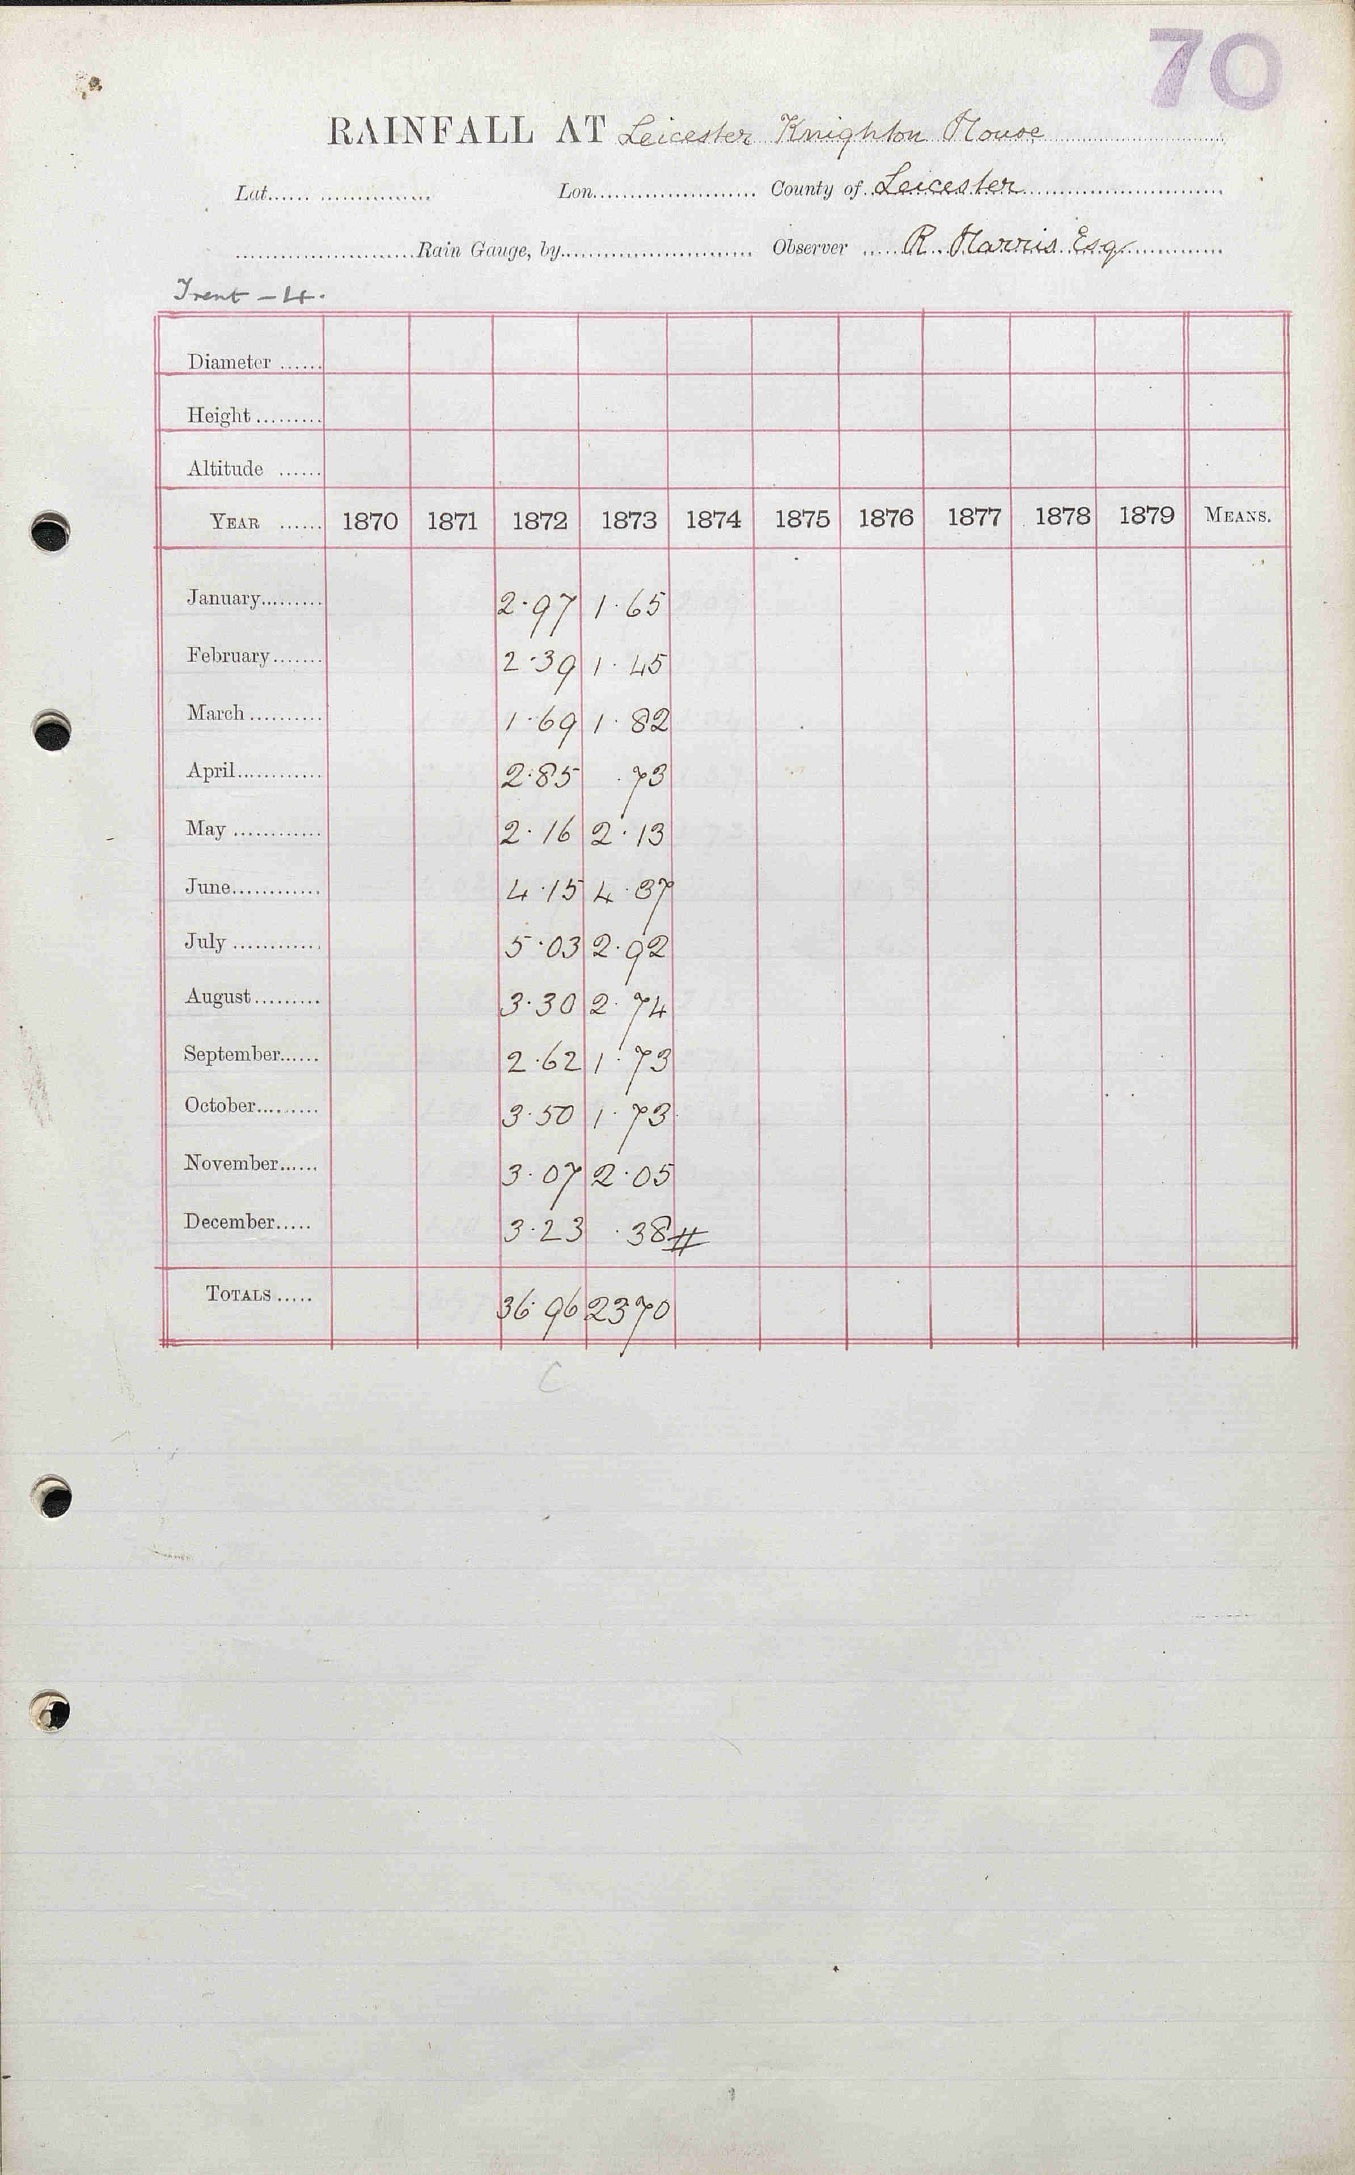 70
RAINFALL AT Leicester Knighton House
Lat. Lon. County of Leicester
Rain Gauge, by Observer R. Harris Esq
Trent - 4.
Diameter
Height
Altitude
YEAR 1870 1871 1872 1873 1874 1875 1876 1877 1878 1879 MEANS.
January 2·97 1·65
February 2·39 1·45
March 1·69 1·82
April 2·85 ·73
May 2·16 2·13
June 4·15 4·37
July 5·03 2·92
August 3·30 2·74
September 2·62 1·73
October 3·50 1·73
November 3·07 2·05
December 3·23 ·38 #
TOTALS 36·96 23·70
C